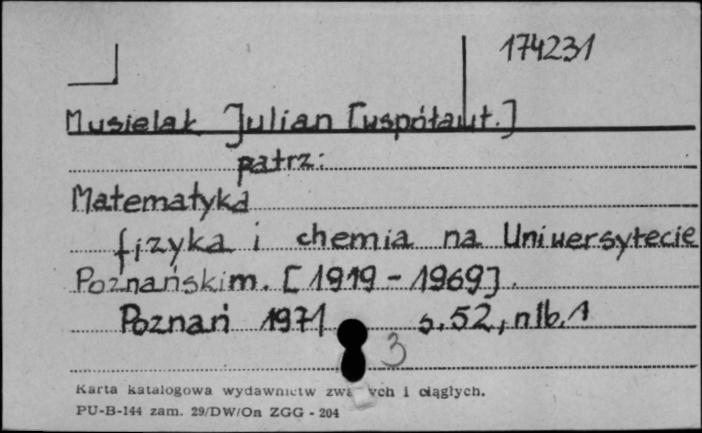 174231
Musielak Julian [współaut.]
patrz:
Matematyka
fizyka i chemia na Uniwersytecie
Poznańskim. [1919-1969].
Poznań 1971 s. 52, nlb. 1
3
Karta katalogowa wydawnictw i ciągłych.
PU-B-144 zam. 29/DW/On ZGG - 204